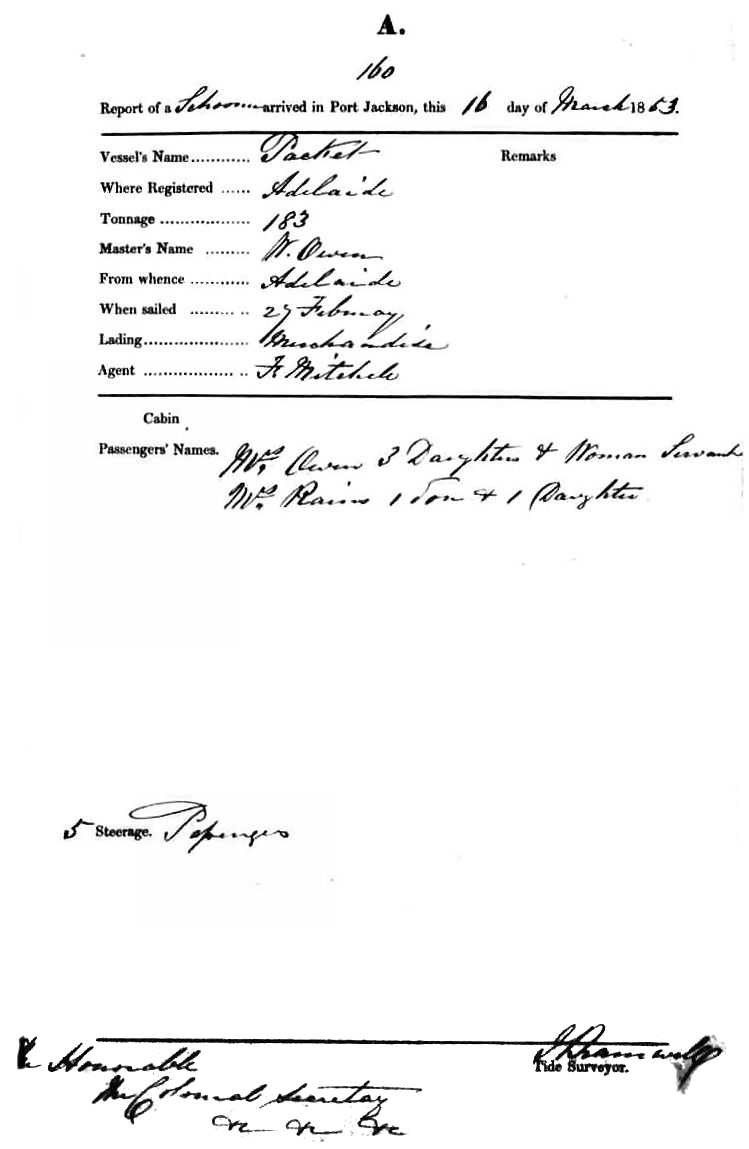 A.
160
Report of a Schooner arrived in Port Jackson, this 16 day of March 1853.
Vessel's Name............ Packet Remarks
Where Registered ...... Adelaide
Tonnage .................. 183
Master's Name ......... W. Owen
From whence ............ Adelaide
When sailed ......... .. 27 February
Lading..................... Merchandise
Agent .................. .. F Mitchell
Cabin
Passengers' Names. Mrs. Owen 3 Daughters & Woman Servant
Mrs. Rains 1 Son & 1 Daughter
5 Steerage. Passengers
Honorable
the Colonial Secretary
&c &c &c
Tide Surveyor.